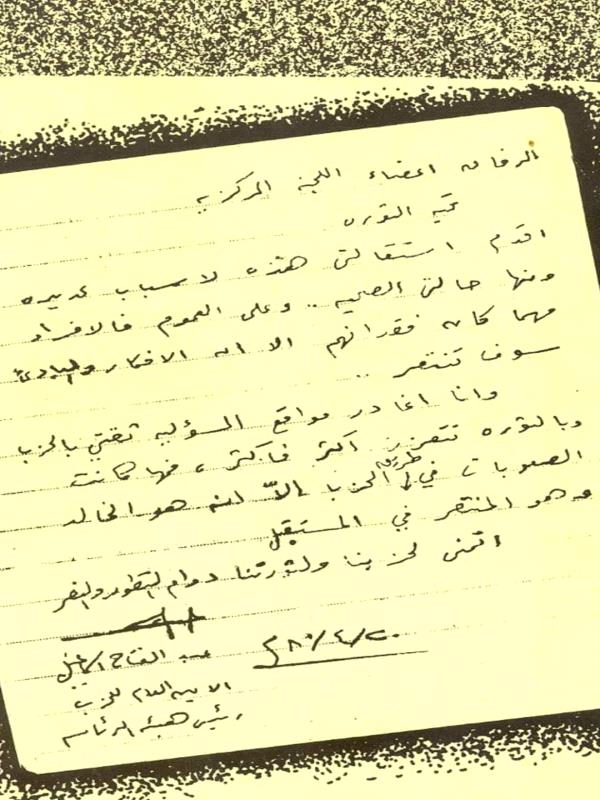 الرفاق اعضاء اللجنة المركزية
تحية الثورة
اقدم استقالتي هذه لاسباب عديده
ومنها حالتي الصحيه .. وعلى العموم فالافراد
مهما كان فقدانهم الا ان الافكار والمبادئ
سوف تنتصر ..
وانا اغادر مواقع المسؤليه ثقتي بالحزب
وبالثوره تتعزز اكثر فأكثر ، فمهما كانت
الصعوبات في طريق الحزب إلاّ انه هو الخالد
وهو المنتصر في المستقبل
اتمنى لحزبنا ولثورتنا دوام التطور والنصر
٢٠/٤/٨٠م
عبد الفتاح اسماعيل
الامين العام للحزب
رئيس هيئة الرئاسه